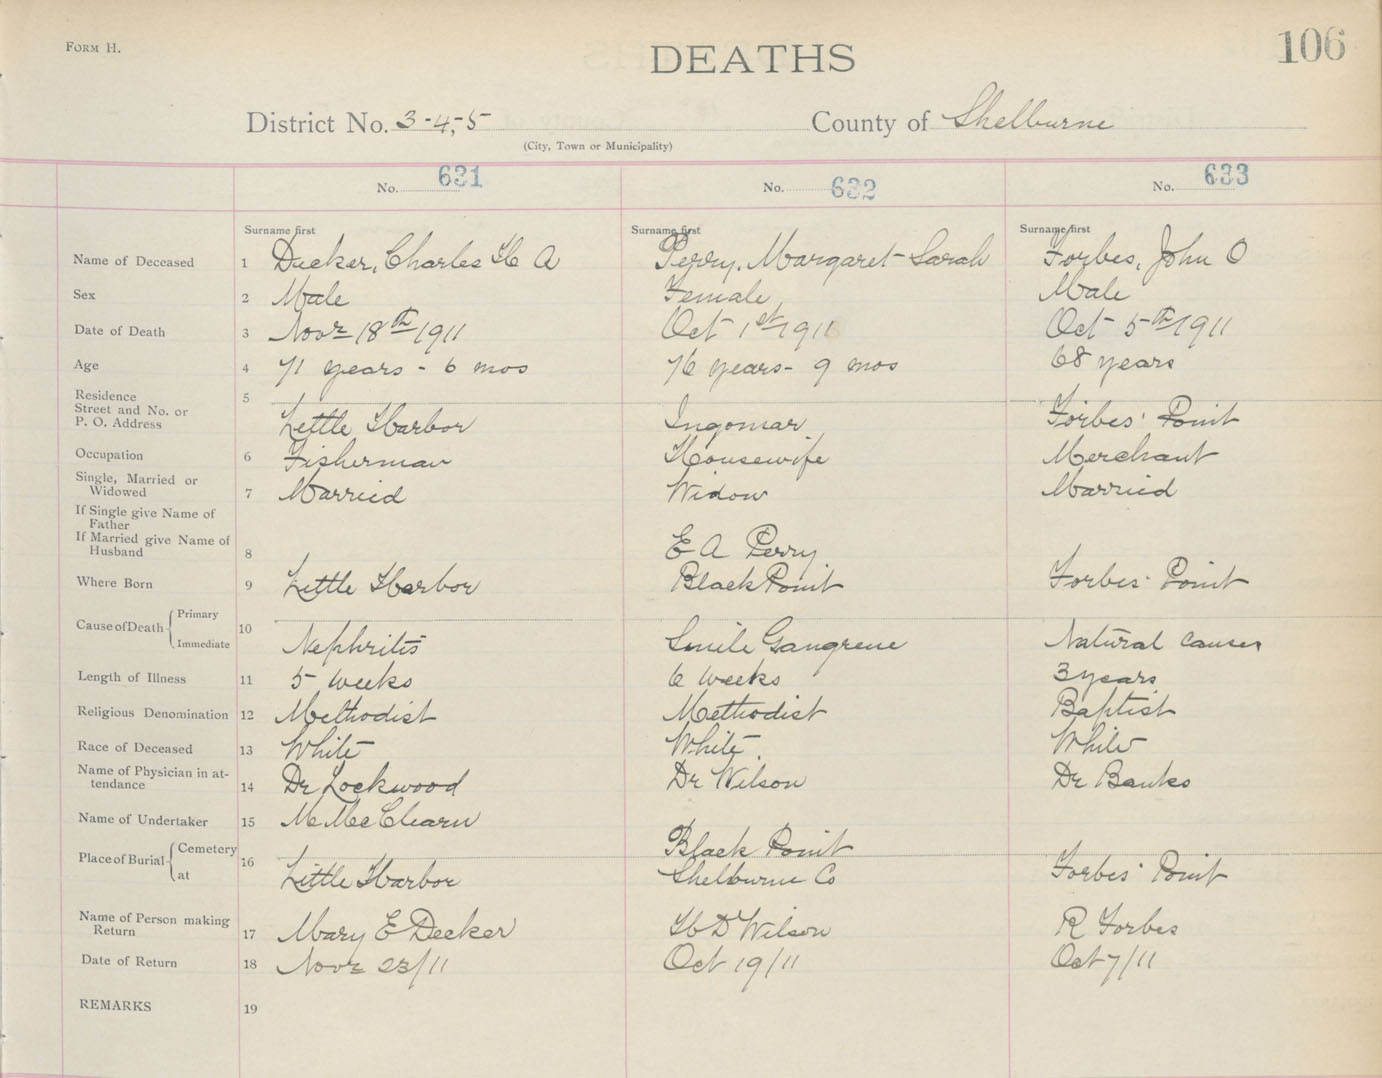 FORM H.
DEATHS
106
District No. 3-4,-5 County of Shelburne
(City, Town or Municipality)
No. 631 No. 632 No. 633
Surname first Surname first Surname first
Name of Deceased 1 Decker, Charles H A Perry, Margaret Sarah Forbes, John O
Sex 2 Male Female Male
Date of Death 3 Novr 18th 1911 Oct 1st 1911 Oct 5th 1911
Age 4 71 years - 6 mos 76 years - 9 mos 68 years
Residence
Street and No. or
P. O. Address 5 Little Harbor Ingomar Forbes' Point
Occupation 6 Fisherman Housewife Merchant
Single, Married or
Widowed 7 Married Widow Married
If Single give Name of
Father
If Married give Name of
Husband 8 E A Perry
Where Born 9 Little Harbor Black Point Forbes' Point
Cause of Death Primary
Immediate 10 Nephritis Senile Gangrene Natural causes
Length of Illness 11 5 weeks 6 weeks 3 years
Religious Denomination 12 Methodist Methodist Baptist
Race of Deceased 13 White White White
Name of Physician in at-
tendance 14 Dr Lockwood Dr Wilson Dr Banks
Name of Undertaker 15 M McClearn
Place of Burial Cemetery 16 Black Point
at Little Harbor Shelburne Co Forbes' Point
Name of Person making
Return 17 Mary E Decker H D Wilson R Forbes
Date of Return 18 Novr 23/11 Oct 19/11 Oct 7/11
REMARKS 19